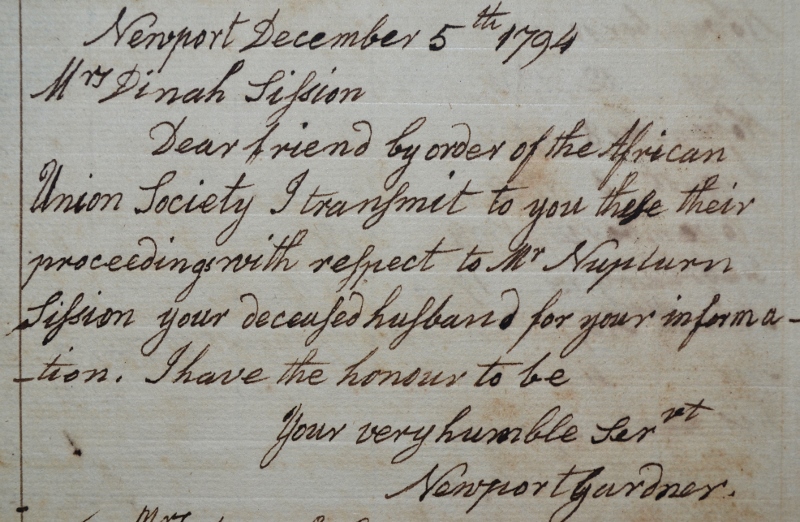 Newport December 5th 1794
Mrs Dinah Sifsion
Dear friend by order of the African
Union Society I transmit to you these their
proceedings with respect to Mr Nupturn
Sifsion your deceased husband for your informa-
-tion. I have the honour to be
Your very humble Servt
Newport Gardner.
Mrs